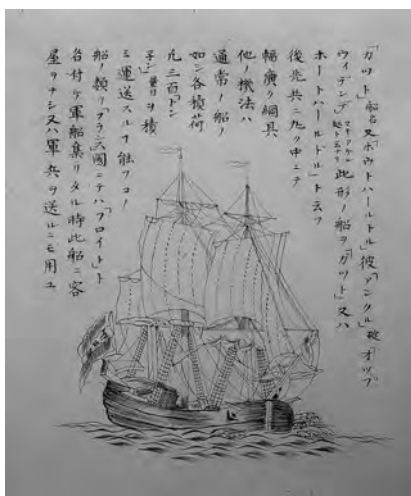 「ガット」船名又「ボウトハールドル」彼「アンクル」碇「オップ
ウィデンデ」マキアゲル 起ト云フヿ 此形ノ船ヲ「ガット」又ハ
ホートハールドル」ト云フ
後先共ニ丸ク中ニテ
幅廣ク綱具
他ノ機法ハ
通常ノ船ノ
如シ各積荷
凡三百「トン
子シ」量目ヲ積
ミ運送スルヿ能フコノ
船ノ類ヲ「フランス國ニテハ「フロイト」ト
名付ケ軍船集リタル時此船ニ客
屋ヲナシ又ハ軍兵ヲ送ルニモ用ユ